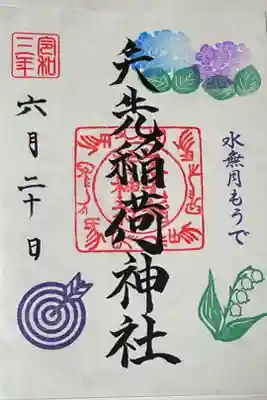 水無月もうで
矢先稲荷神社
令和
三年
六月二十日